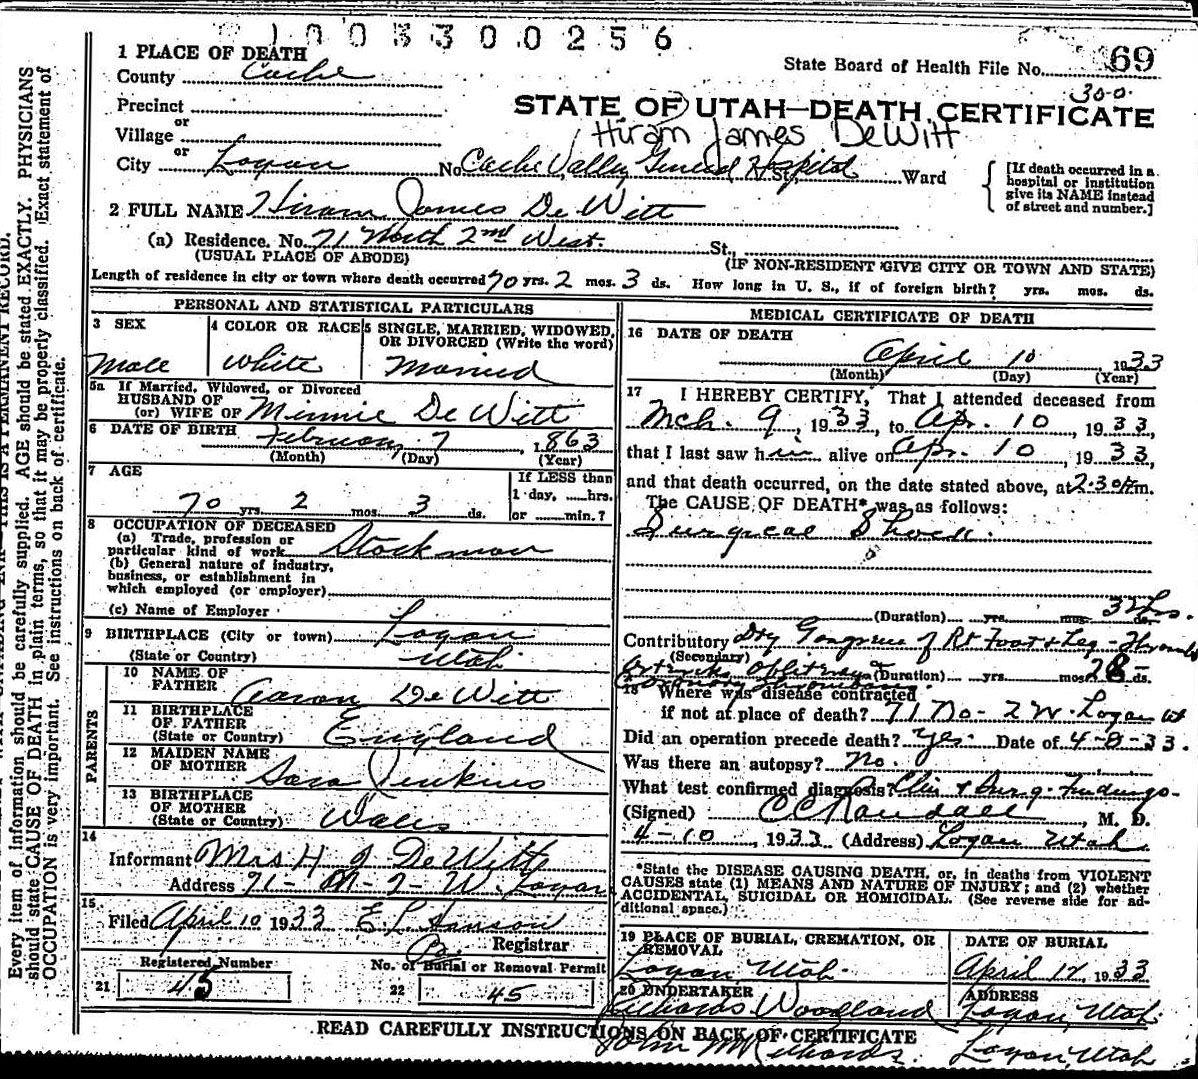 1003300256
1 PLACE OF DEATH
County Cache
State Board of Health File No. 69
300
Precinct
or
Village
or
City Logan
STATE OF UTAH—DEATH CERTIFICATE
Hiram James DeWitt
No. Cache Valley General Hospital St., Ward
[If death occurred in a hospital or institution give its NAME instead of street and number.]
2 FULL NAME Hiram James De Witt
(a) Residence. No. 71 North 2nd West. St.,
(USUAL PLACE OF ABODE)
(IF NON-RESIDENT GIVE CITY OR TOWN AND STATE)
Length of residence in city or town where death occurred 70 yrs. 2 mos. 3 ds. How long in U. S., if of foreign birth? yrs. mos. ds.
PERSONAL AND STATISTICAL PARTICULARS
3 SEX
Male
4 COLOR OR RACE
White
5 SINGLE, MARRIED, WIDOWED, OR DIVORCED (Write the word)
Married
5a If Married, Widowed, or Divorced
HUSBAND OF
(or) WIFE OF Minnie De Witt
6 DATE OF BIRTH February 7, 1863
(Month) (Day) (Year)
7 AGE
70 yrs. 2 mos. 3 ds.
If LESS than
1 day, hrs.
or min.?
8 OCCUPATION OF DECEASED
(a) Trade, profession or
particular kind of work Stockman
(b) General nature of industry,
business, or establishment in
which employed (or employer)
(c) Name of Employer
9 BIRTHPLACE (City or town) Logan
(State or Country) Utah
PARENTS
10 NAME OF
FATHER Aaron De Witt
11 BIRTHPLACE
OF FATHER
(State or Country) England
12 MAIDEN NAME
OF MOTHER Sara Jenkins
13 BIRTHPLACE
OF MOTHER
(State or Country) Wales
14
Informant Mrs H J DeWitt
Address 71-N-2-W. Logan
15
Filed April 10 1933 E L Hanson
Registrar
Registered Number
21 45
No. of Burial or Removal Permit
22 45
MEDICAL CERTIFICATE OF DEATH
16 DATE OF DEATH
April 10 1933
(Month) (Day) (Year)
17 I HEREBY CERTIFY, That I attended deceased from
Mch. 9, 1933, to Apr. 10, 1933,
that I last saw him alive on Apr. 10, 1933,
and that death occurred, on the date stated above, at 2:30 P.m.
The CAUSE OF DEATH* was as follows:
Surgical Shock.
(Duration) yrs. mos. ds.
Contributory Dry Gangrene of Rt Foot & Leg -
(Secondary)
(Duration) yrs. mos. 28 ds.
18 Where was disease contracted
if not at place of death? 71 No - 2 W. Logan Ut
Did an operation precede death? yes. Date of 4-8-33.
Was there an autopsy? No.
What test confirmed diagnosis? Clin & Surg. Findings-
(Signed) C C Randall, M. D.
4-10, 1933 (Address) Logan Utah.
*State the DISEASE CAUSING DEATH, or, in deaths from VIOLENT
CAUSES state (1) MEANS AND NATURE OF INJURY; and (2) whether
ACCIDENTAL, SUICIDAL OR HOMICIDAL. (See reverse side for ad-
ditional space.)
19 PLACE OF BURIAL, CREMATION, OR
REMOVAL
Logan Utah.
DATE OF BURIAL
April 12, 1933
20 UNDERTAKER
Richards Woodland
John M Richards.
ADDRESS
Logan, Utah.
Logan, Utah
READ CAREFULLY INSTRUCTIONS ON BACK OF CERTIFICATE
THIS IS A PERMANENT RECORD.
Every item of information should be carefully supplied. AGE should be stated EXACTLY. PHYSICIANS
should state CAUSE OF DEATH in plain terms, so that it may be properly classified. Exact statement of
OCCUPATION is very important. See instructions on back of certificate.